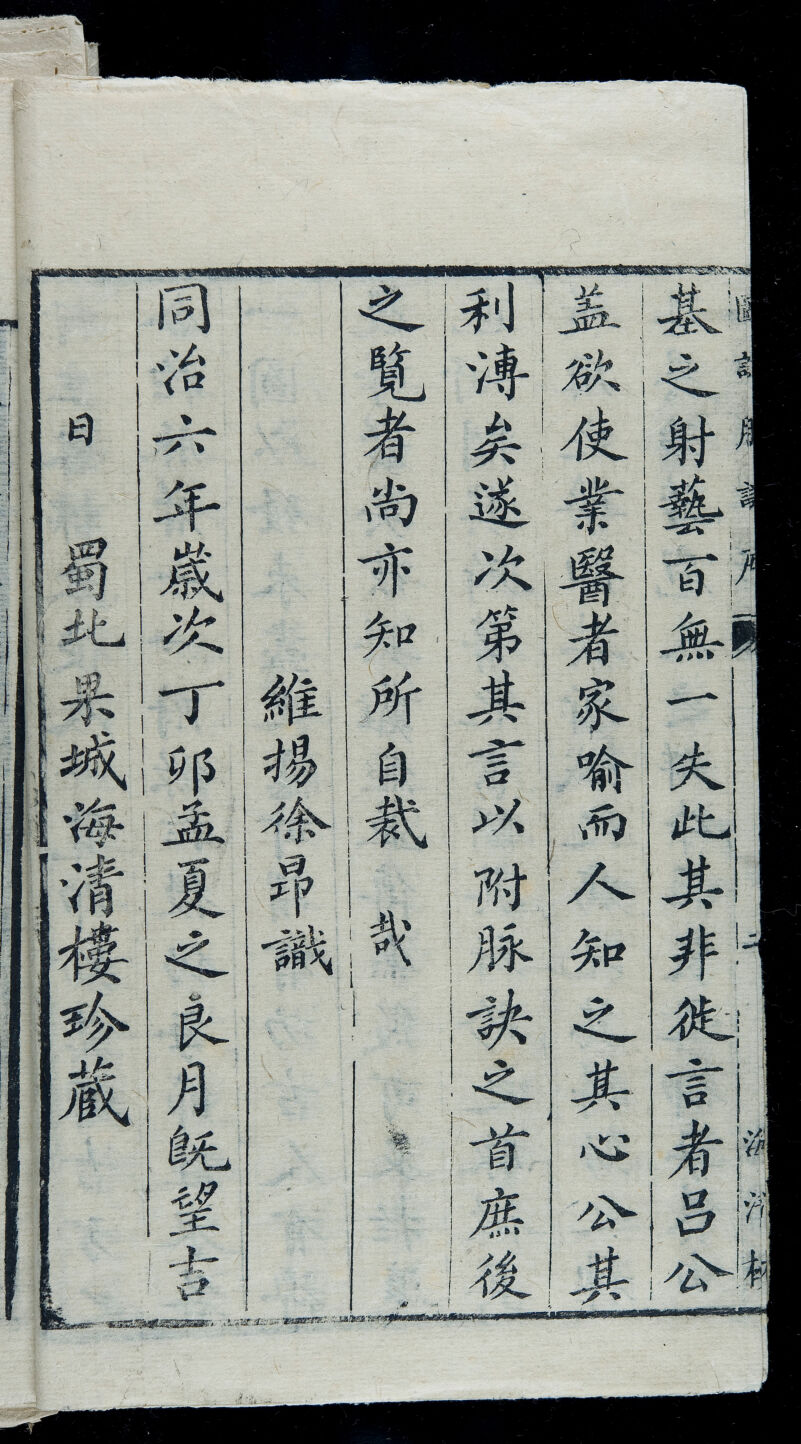 基之射藝百無一失此其非徙言者呂公
盖欲使業醫者家喻而人知之其心公其
利溥矣遂次第其言以附脉訣之首庶後
之覽者尚亦知所自裁 哉
維揚徐昂識
同治六年嵗次丁夘孟夏之良月旣望吉
日 蜀北果城海清樓珍蔵